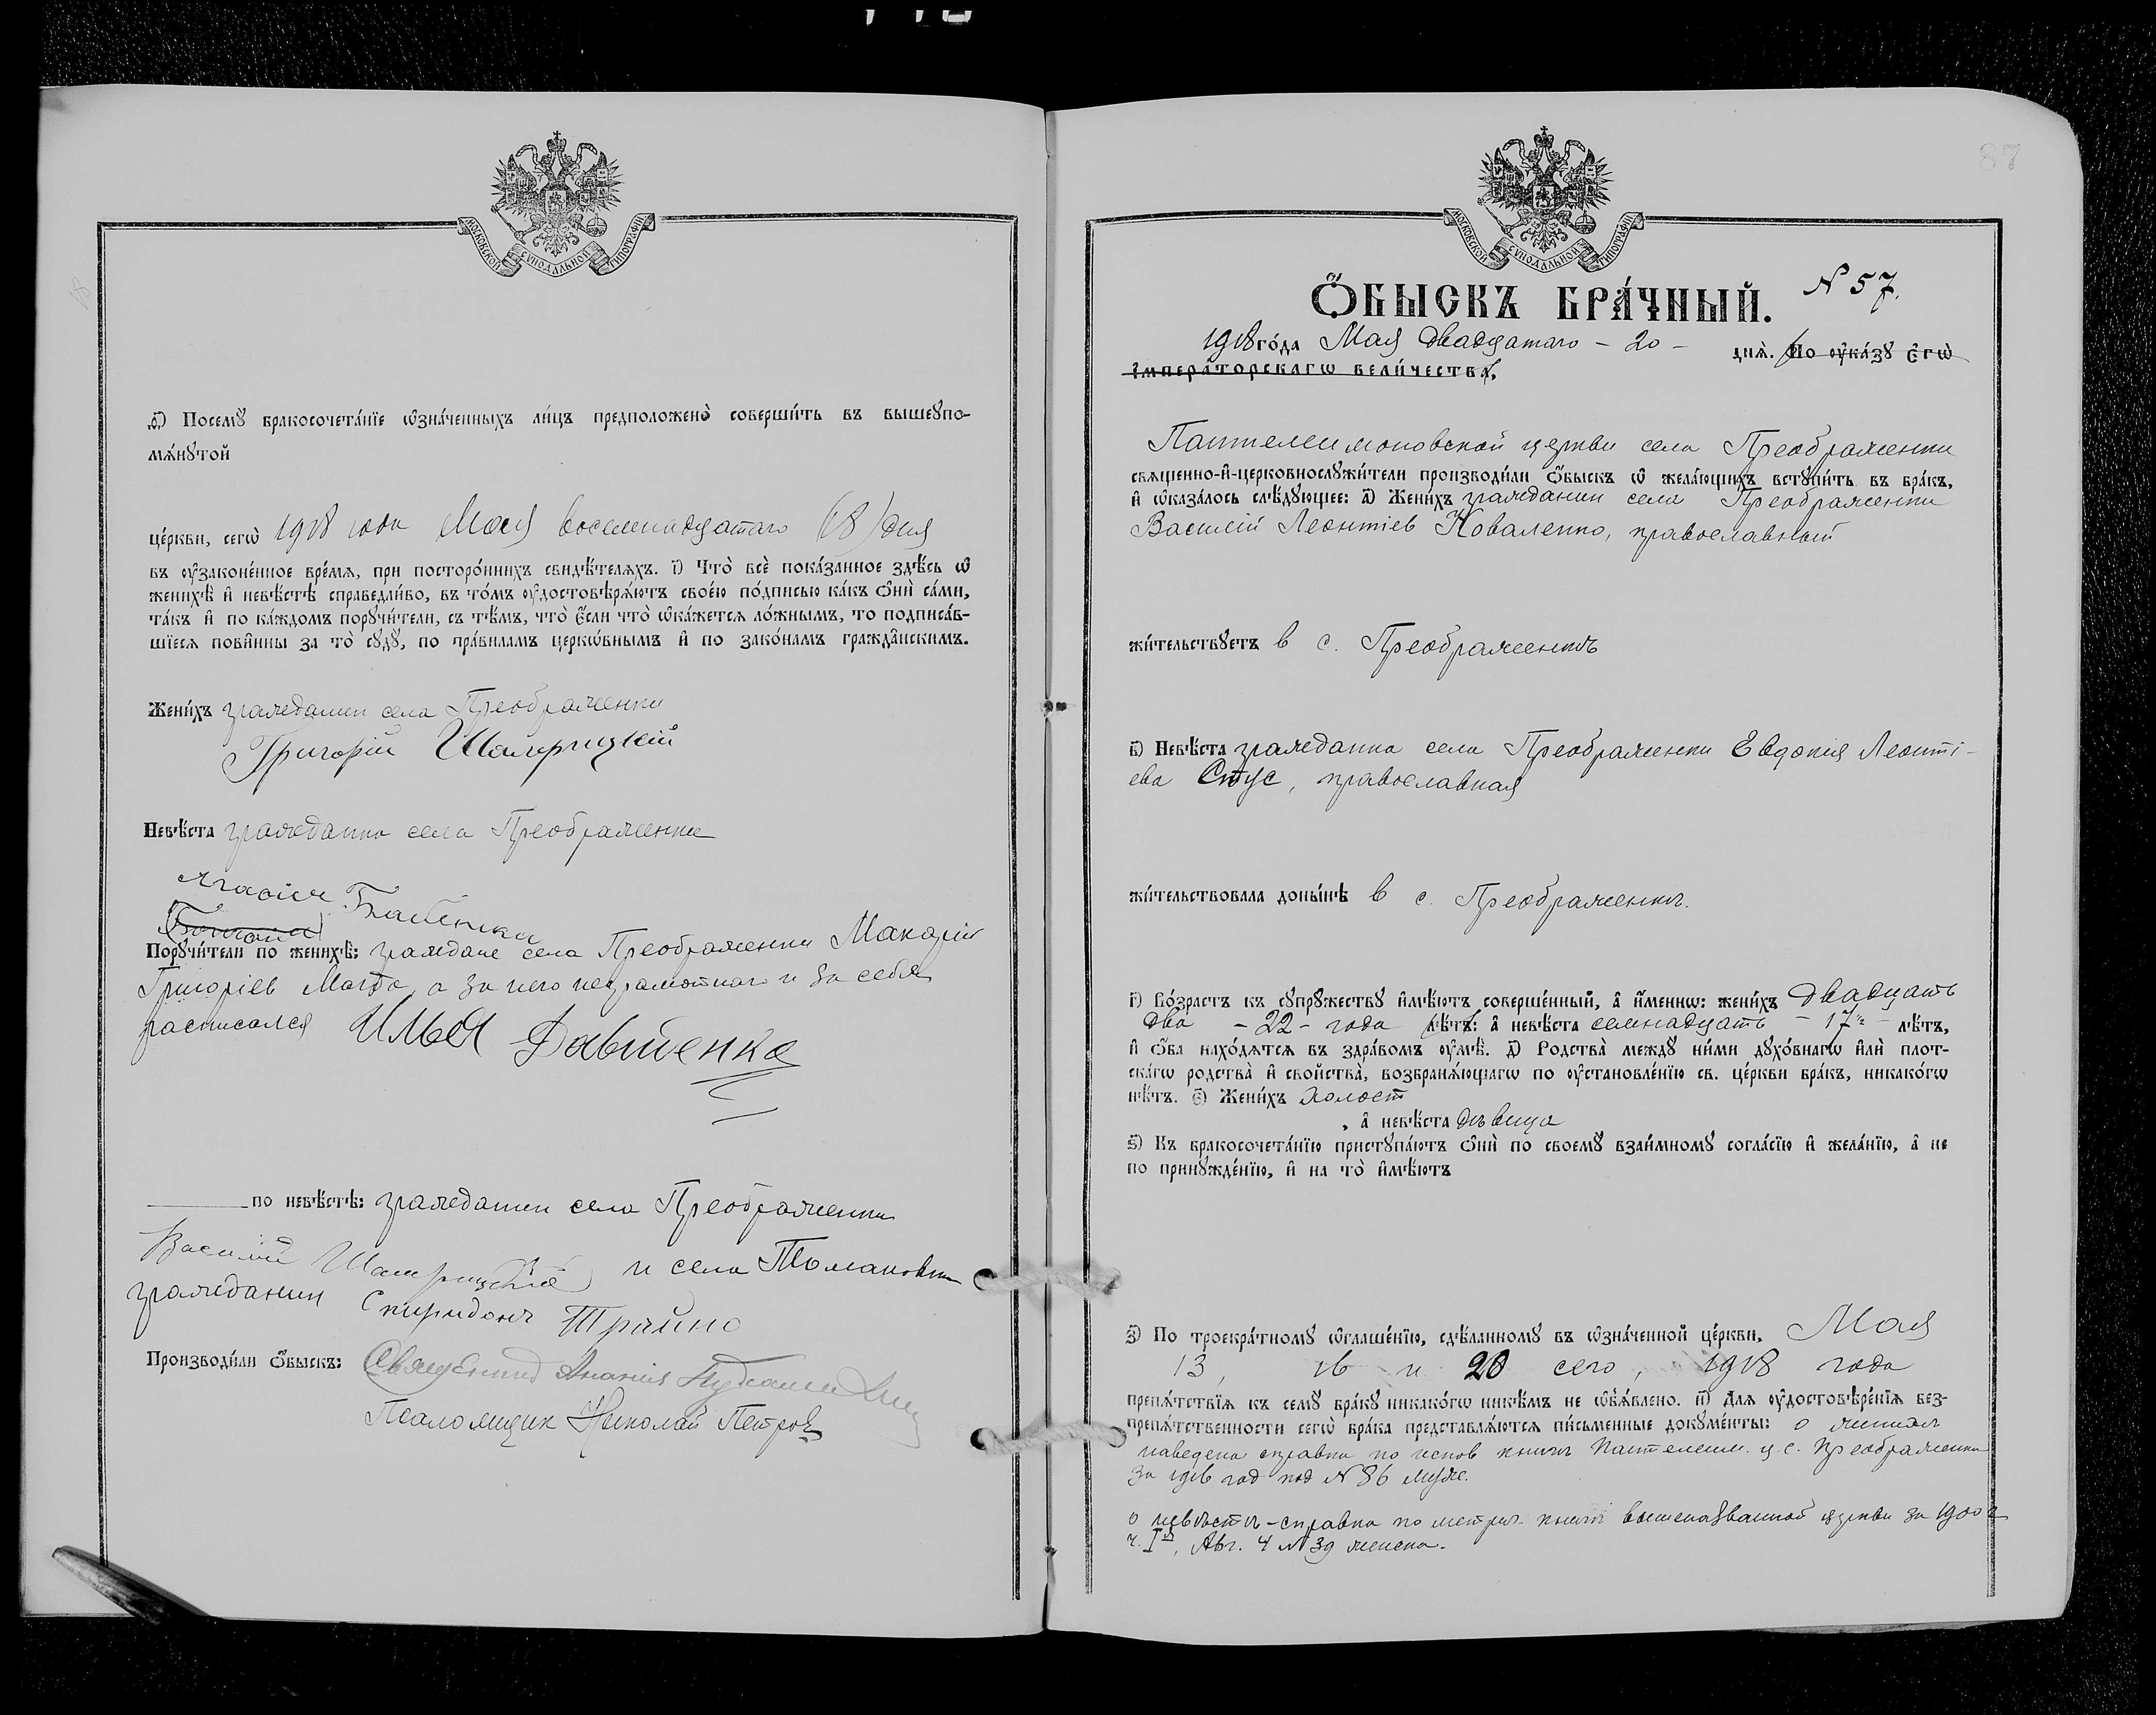 МОСКОВСКОЙ СѴНОДАЛЬНОЙ ТИПОГРАФІИ
ѳ҃) Посемꙋ̀ бракосочета́нїе ѡ҆зна́ченныхъ ли́цъ предположено̀ соверши́ть въ вышеꙋпо-
мѧ́нꙋтой
це́ркви, сегѡ̀ 1918 года Мая восемнадцатаго (18) дня
въ ᲂу҆зако́ненное вре́мѧ, при посторо́ннихъ свидѣ́телѧхъ. і҃) Что̀ всѐ пока́занное здѣ́сь ѡ҆
женихѣ̀ и҆ невѣ́стѣ справедли́во, въ то́мъ ᲂу҆достовѣрѧ́ютъ свое́ю по́дписью ка́къ ѻ҆нѝ са́ми,
та́къ и҆ по ка́ждомъ порꙋчи́тели, съ тѣ́мъ, что̀ є҆́сли что̀ ѡ҆ка́жется ло́жнымъ, то подписа́в-
шїеся пови́нны за то̀ сꙋдꙋ̀, по пра́виламъ церкѡ́внымъ и҆ по зако́намъ гражда́нскимъ.
Жени́хъ гражданин села Преображенки
Григорій Шамрицкій
Невѣ́ста гражданка села Преображенки
Бабенка
Порꙋчи́тели по женихѣ̀: граждане села Преображенки Макарій
Григоріев Магда, а за него неграмотнаго и за себя
расписался Илья Давиденко
по невѣ́стѣ: гражданин села Преображенки
Василій Шамрицкій и села Томаковки
гражданин Спиридонъ Трайно
Производи́ли ѻ҆́быскъ: Священник Ананія
Псаломщик Николай Петров
87
МОСКОВСКОЙ СѴНОДАЛЬНОЙ ТИПОГРАФІИ
Ѻ҆́БЫСКЪ БРА́ЧНЫЙ. N 57.
1918 го́да Мая двадцатаго - 20 - днѧ̀. По ᲂу҆ка́зꙋ є҆гѡ̀
и҆мпера́торскагѡ вели́чества,
Пантелеимоновской церкви села Преображенки
свѧще́нно-и҆-церковнослꙋжи́тели производи́ли ѻ҆́быскъ ѡ҆ жела́ющихъ встꙋпи́ть въ бра́къ,
и҆ ѡ҆каза́лось слѣ́дꙋющее: а҃) Жени́хъ гражданин села Преображенки
Василій Леонтіев Коваленко, православный
жи́тельствꙋетъ в с. Преображенкѣ
в҃) Невѣ́ста гражданка села Преображенки Евдокия Леонті-
ева Стус, православная
жи́тельствовала доны́нѣ в с. Преображенкѣ.
г҃) Во́зрастъ къ сꙋпрꙋ́жествꙋ и҆мѣ́ютъ соверше́нный, а҆ и҆́меннѡ: жени́хъ двадцать
два - 22 - года лѣ́тъ: а҆ невѣ́ста семнадцать - 17 - лѣ́тъ,
и҆ ѻ҆́ба нахо́дятся въ здра́вомъ ᲂу҆мѣ̀. д҃) Родства̀ междꙋ̀ ни́ми дꙋхо́внагѡ и҆лѝ плот-
ска́гѡ родства̀ и҆ сво́йства, возбранѧ́ющагѡ по ᲂу҆становле́нїю св. це́ркви бра́къ, никако́гѡ
нѣ́тъ. є҃) Жени́хъ холост
, а҆ невѣ́ста дѣвица
ѕ҃) Къ бракосочета́нїю пристꙋпа́ютъ ѻ҆нѝ по своемꙋ̀ взаи́мномꙋ согла́сїю и҆ жела́нїю, а҆ не
по принꙋжде́нїю, и҆ на то̀ и҆мѣ́ютъ
з҃) По троекра́тномꙋ ѡ҆глаше́нїю, сдѣ́ланномꙋ въ ѡ҆зна́ченной це́ркви, Мая
13, 16 и 20 сего, 1918 года
препѧ́тствїѧ къ семꙋ̀ бра́кꙋ никако́гѡ никѣ́мъ не ѡ҆б̾ѧ́влено. и҃) Для ᲂу҆достовѣре́нїѧ без-
препѧ́тственности сегѡ̀ бра́ка представлѧ́ются пи́сьменные докꙋме́нты: о женихѣ
наведена справка по испов книгѣ Пантелеим. ц. с. Преображенки
за 1916 год под N 86 муж.
о невѣстѣ - справка по метрич. книгѣ вышеназванной церкви за 1900 г
ч. I-й, Авг. 4 N 39 женска.